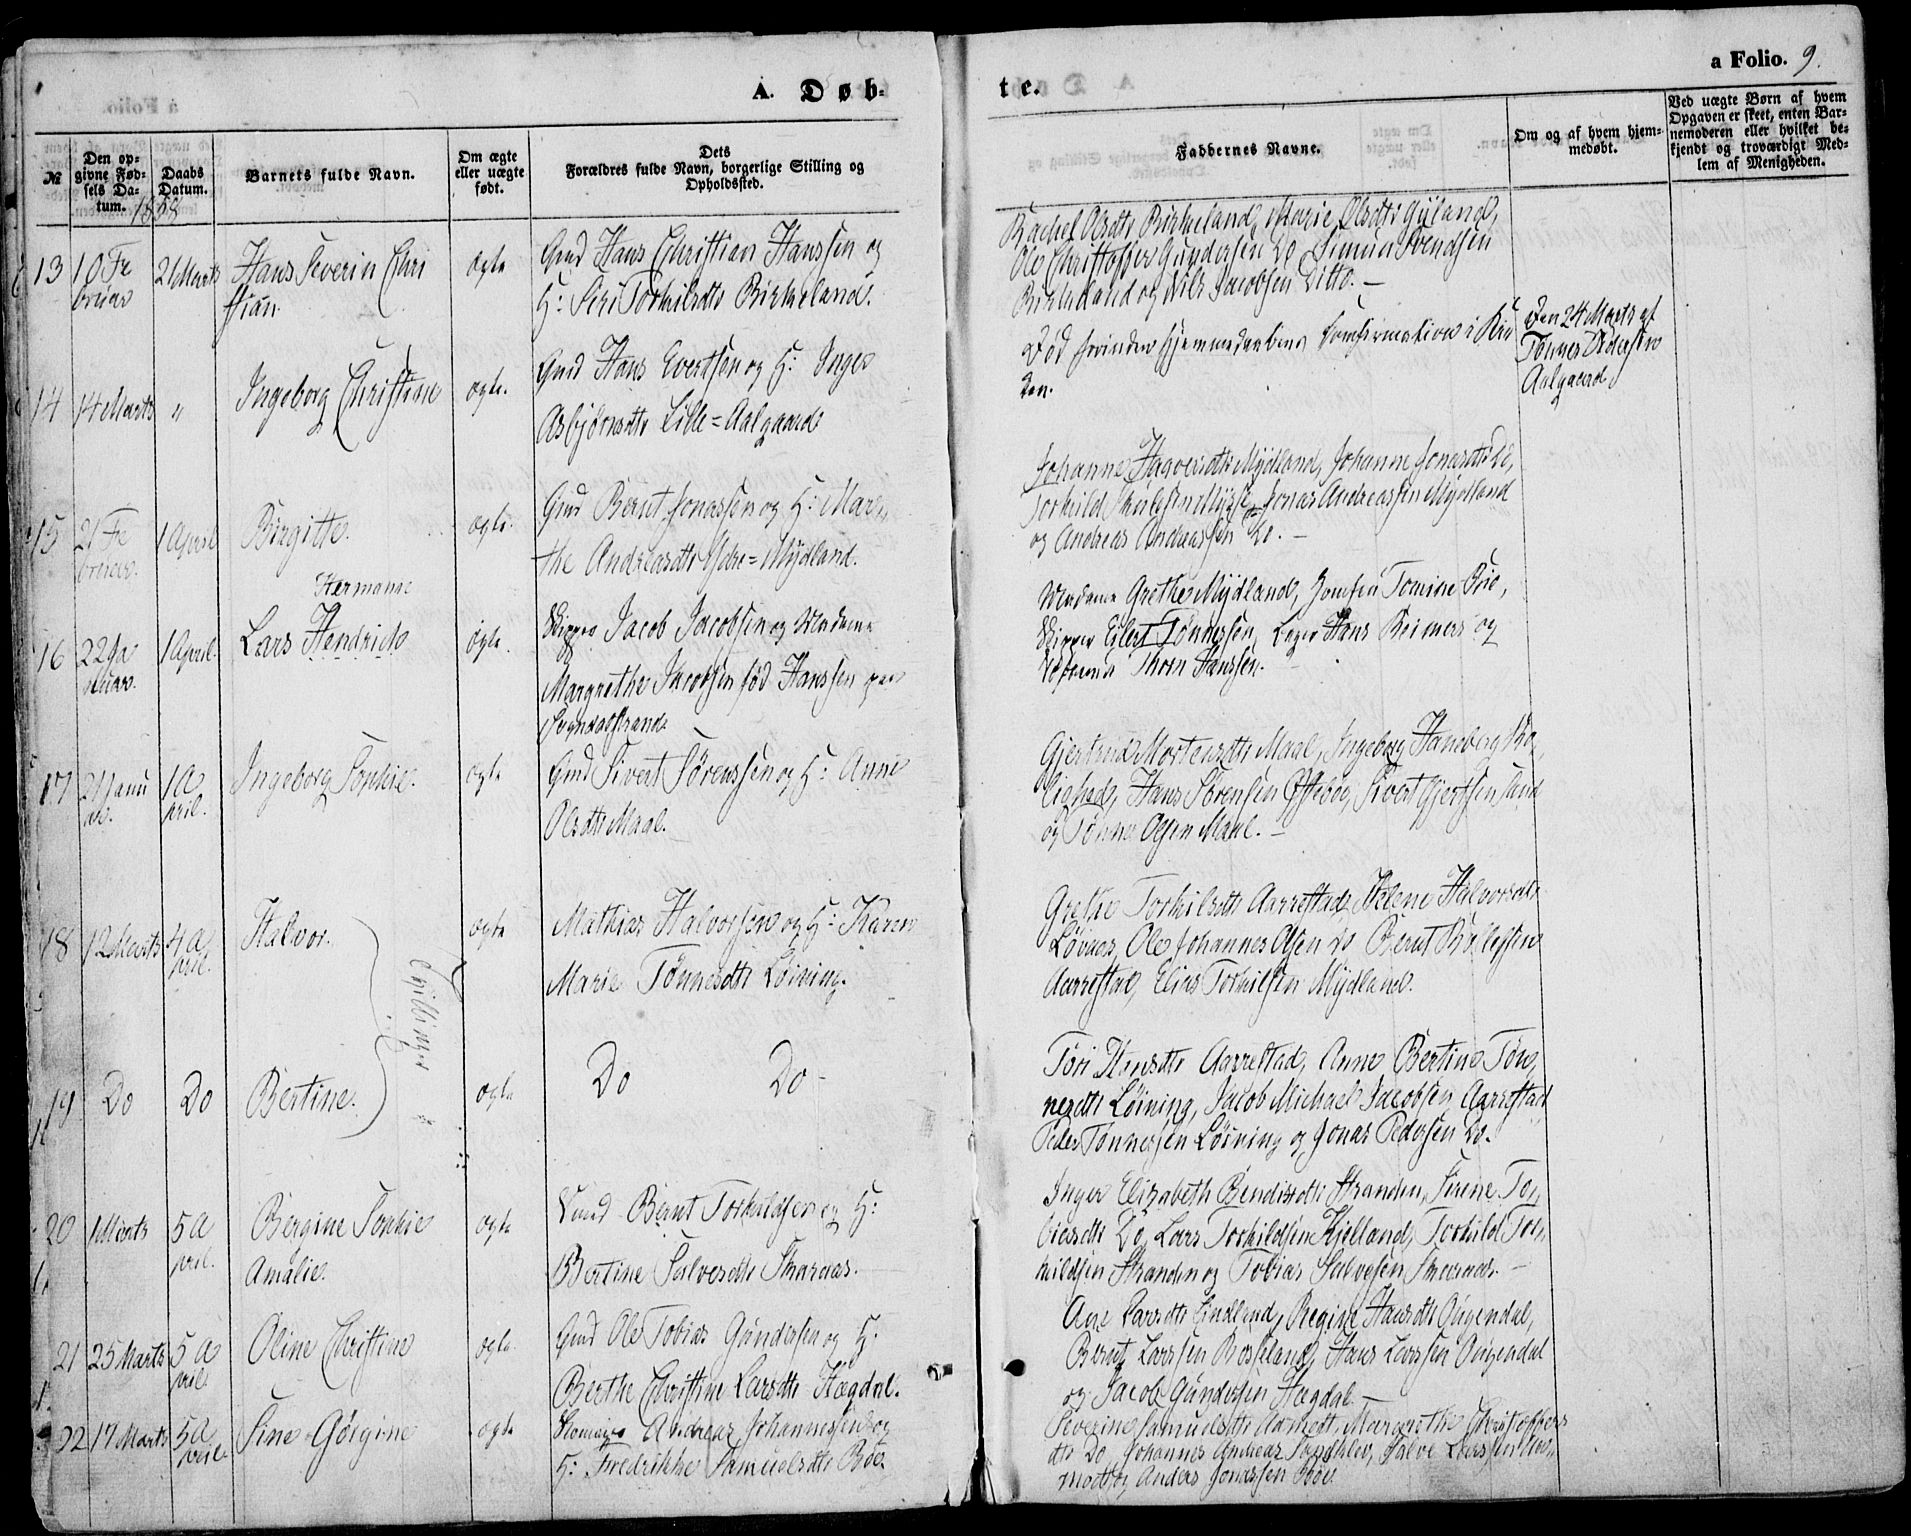 A. Døb-
te.
a Folio. 9.
№
Den op-
givne Fød-
sels Da-
tum.
1858
Daabs
Datum.
Barnets fulde Navn.
Om ægte
eller uægte
født.
Dets
Forældres fulde Navn, borgerlige Stilling og
Opholdssted.
Faddernes Navne.
Om og af hvem hjem-
medøbt.
Ved uægte Børn af hvem
Opgaven er skeet, enten Bar-
nemoderen eller hvilket be-
kjendt og troværdigt Med-
lem af Menigheden.
13 10 Fe
bruar
21 Marts
Hans Severin Chri
stian.
ægte
Gmd Hans Christian Hanssen og
H: Siri Torkildsdtr Birkeland.
Rachel Olsdtr Birkeland, Marie Olsdtr Gyland,
Ole Christoffer Gundersen Do Simon Svendsen
Birkeland og Nils Jacobsen Ditto. —
14 14 Marts "
Ingeborg Christine
ægte.
Gmd Hans Evertsen og H: Inger
Asbjørnsdtr Lille=Aalgaard
Død forinden Hjemmedaabens Confirmation i Kir
ken.
Den 24 Marts af
Tønnes
Aalgaard
15 21 Fe
bruar.
1 April
Birgitte.
ægte.
Gmd Bernt Jonassen og H: Mar
the Andreasdtr Ydre=Mydland.
Johanne Mydland, Johanne Jonasdtr Do,
Torkild Jonas Andreassen Mydland
og Andreas Andreassen Do. —
16 22 Ja
nuar.
1 April.
Hermann
Lars Hendrich
ægte.
Skipper Jacob Jacobsen og Madame
Margrethe Jacobsen fød Hanssen paa
Sogndalstrand
Madame Grethe Mydland, Jomfru Tomine
Skipper Eilert Tønnesen, Hans Reimers og
Thorn Hanssen.
17 2 Janu
ar.
1 A
pril.
Ingeborg Sophie.
ægte
Gmd Sivert Sørenssen og H: Anne
Olsdtr Maal.
Gjertrud Mortensdtr Maal, Ingeborg
Hans Sørensen Sivert Gjertsen
og Tønnes Olsen Maal. —
18 12 Marts 4 A
pril.
Halvor.
Tvillinger
ægte
Mathias Halvorsen og H: Karen
Marie Tønnesdtr Løining.
Grethe Torkildsdtr Aarrestad, Helene Halvorsdtr
Løvaas, Ole Johannes Olsen Do Bernt
Aarrestad, Elias Torkilsen Mydland.
19 Do Do
Bertine.
ægte
Do Do —
Tori Aarrestad, Anne Bertine Tøn
nesdtr Løining, Jacob Michael Jacobsen Aarrestad
Peder Tønnesen Løining og Jonas Pedersen Do.
20 1 Marts 5 A
pril.
Bergine Sophie
Amalie.
ægte
Bernt Torkildsen og H:
Bertine Salvesdtr Skaraas.
Inger Elizabeth Bendixdtr Stranden, Sirene To
biasdtr Do, Lars Torkildsen Kjelland, Torkild Tor
kildsen Stranden og Tobias Salvesen —
21 25 Marts 5 A
pril
Oline Christine
ægte.
Gmd Ole Tobias Gundersen og H.
Berthe Christine Larsdtr Hægdal.
Ane Larsdtr Regine Hansdtr
Bernt Larssen Røsseland, Hans Larssen
og Jacob Gundersen Hægdal —
22 17 Marts 5 A
pril
Sine Gørgine
ægte
Andreas Johannessen og
H: Fredrikke Samuelsdtr Bøe.
Severine Samuelsdtr Margrethe Christoffers
dtr Do, Johannes Andreas Salve Larssen
og Anders Jonassen Bøe.